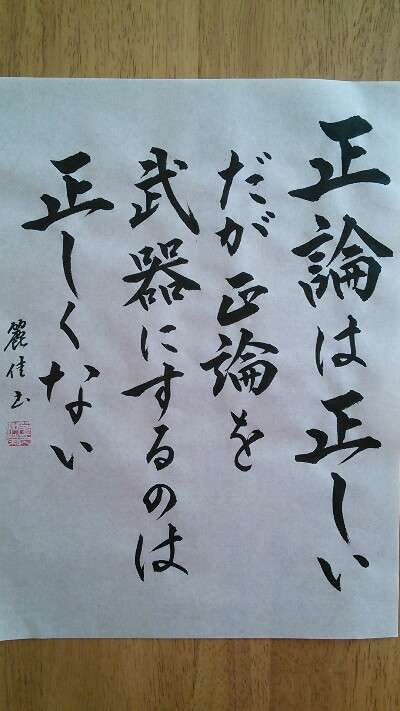 正論は正しい
だが正論を
武器にするのは
正しくない
麗佳